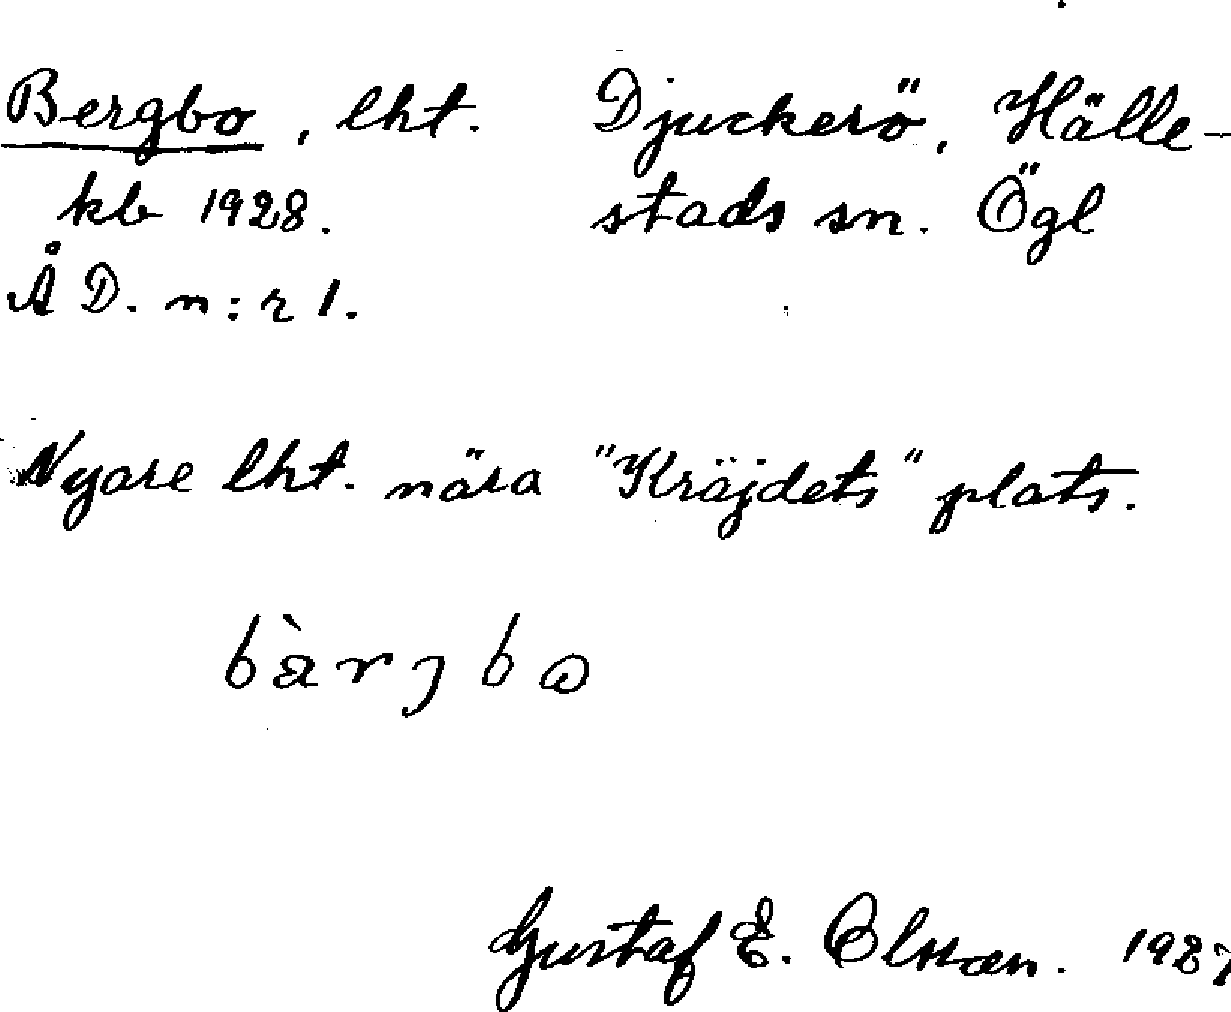 Bergbo, lht. Djuckerö, Hälle-
kb 1928. stads sn. Ögl
ÅD. n:r 1.
Nyare lht. nära "Kräjdets" plats.
bàrjbo
Gustaf E. Olsson. 1927